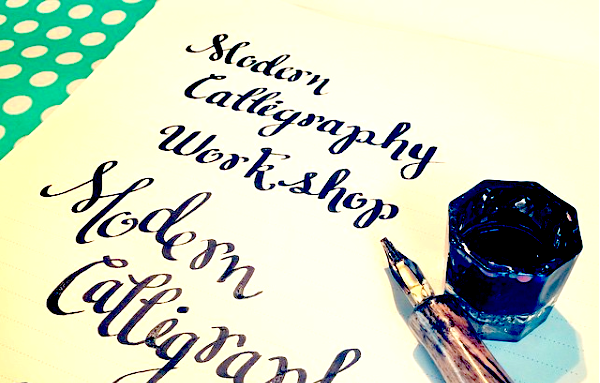 Modern
Calligraphy
Workshop
Modern
Calligraph